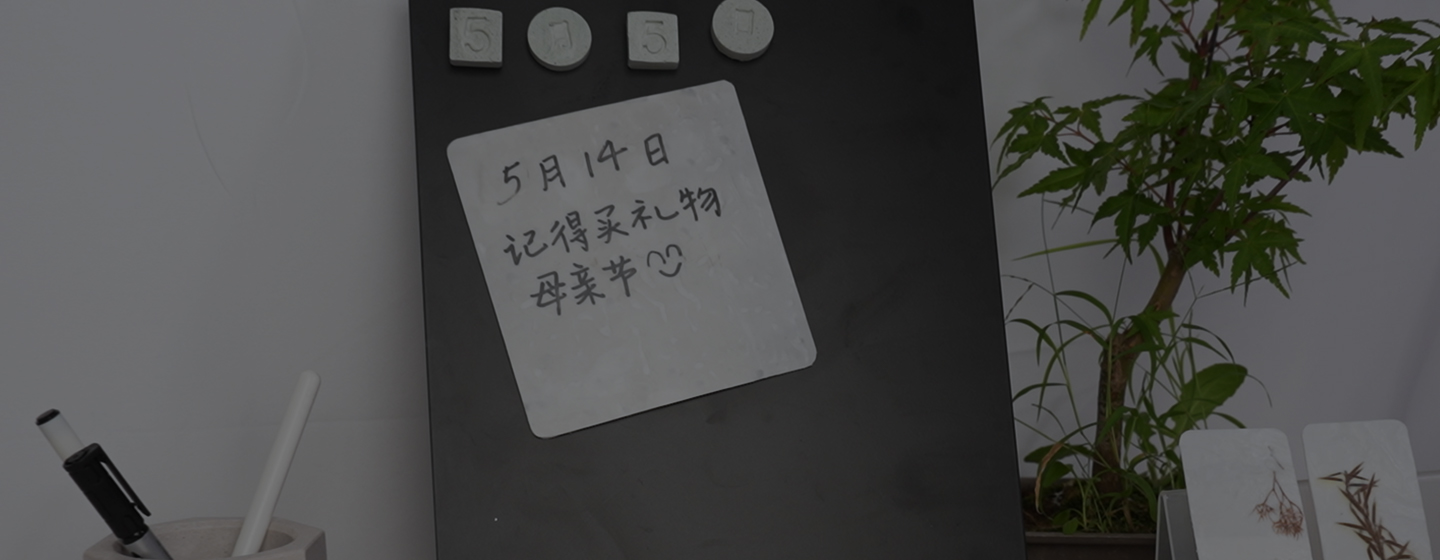 5 月 5 日
5月14日
记得买礼物
母亲节